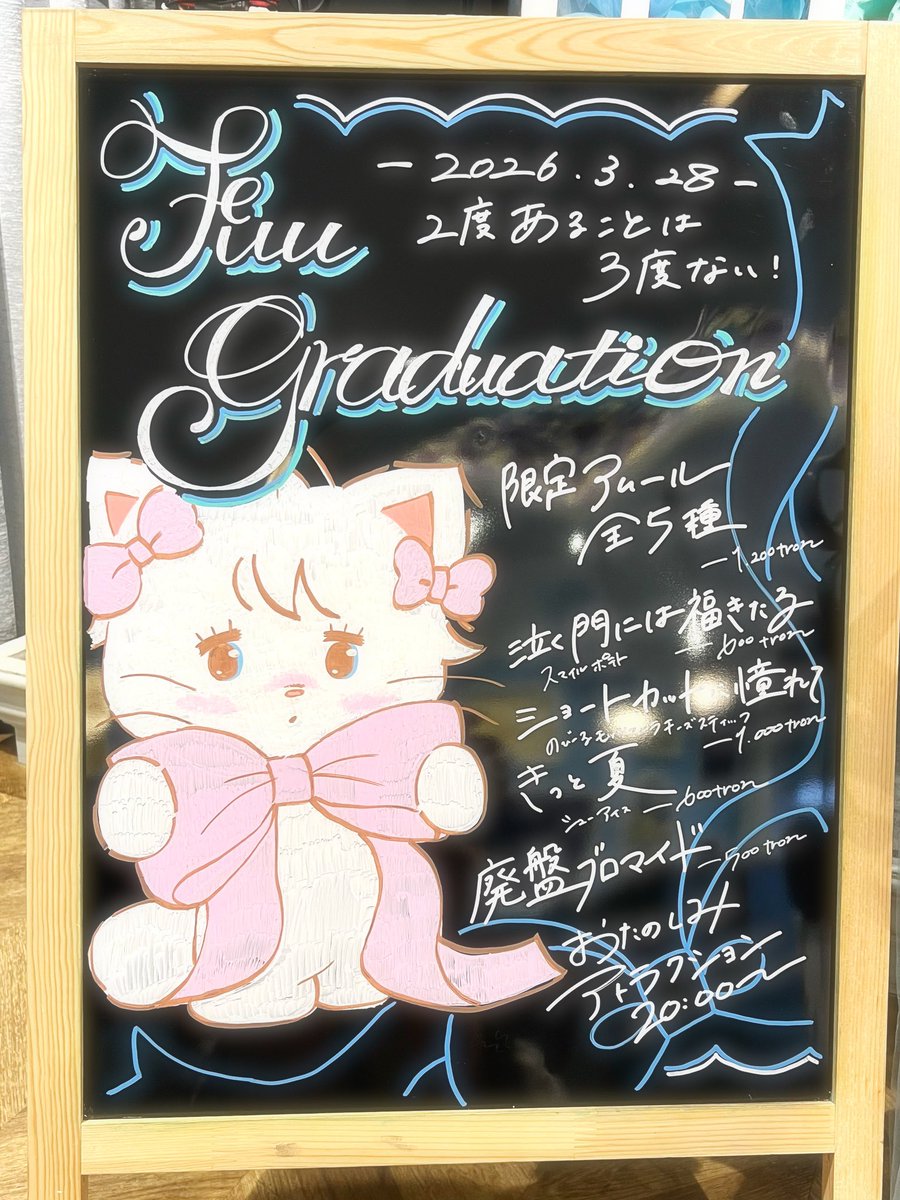 Feuu
- 2026.3.28 -
2度あることは
3度ない!
Graduation
限定アムール
全5種
-1,200tron
泣く門には福きたる
スマイルポテト -600tron
ショートカットに憧れて
のび〜るモッツァレラチーズスティック -1,000tron
きっと夏
シューアイス -600tron
廃盤ブロマイド -500tron
おうたのしみ
アトラクション
20:00〜